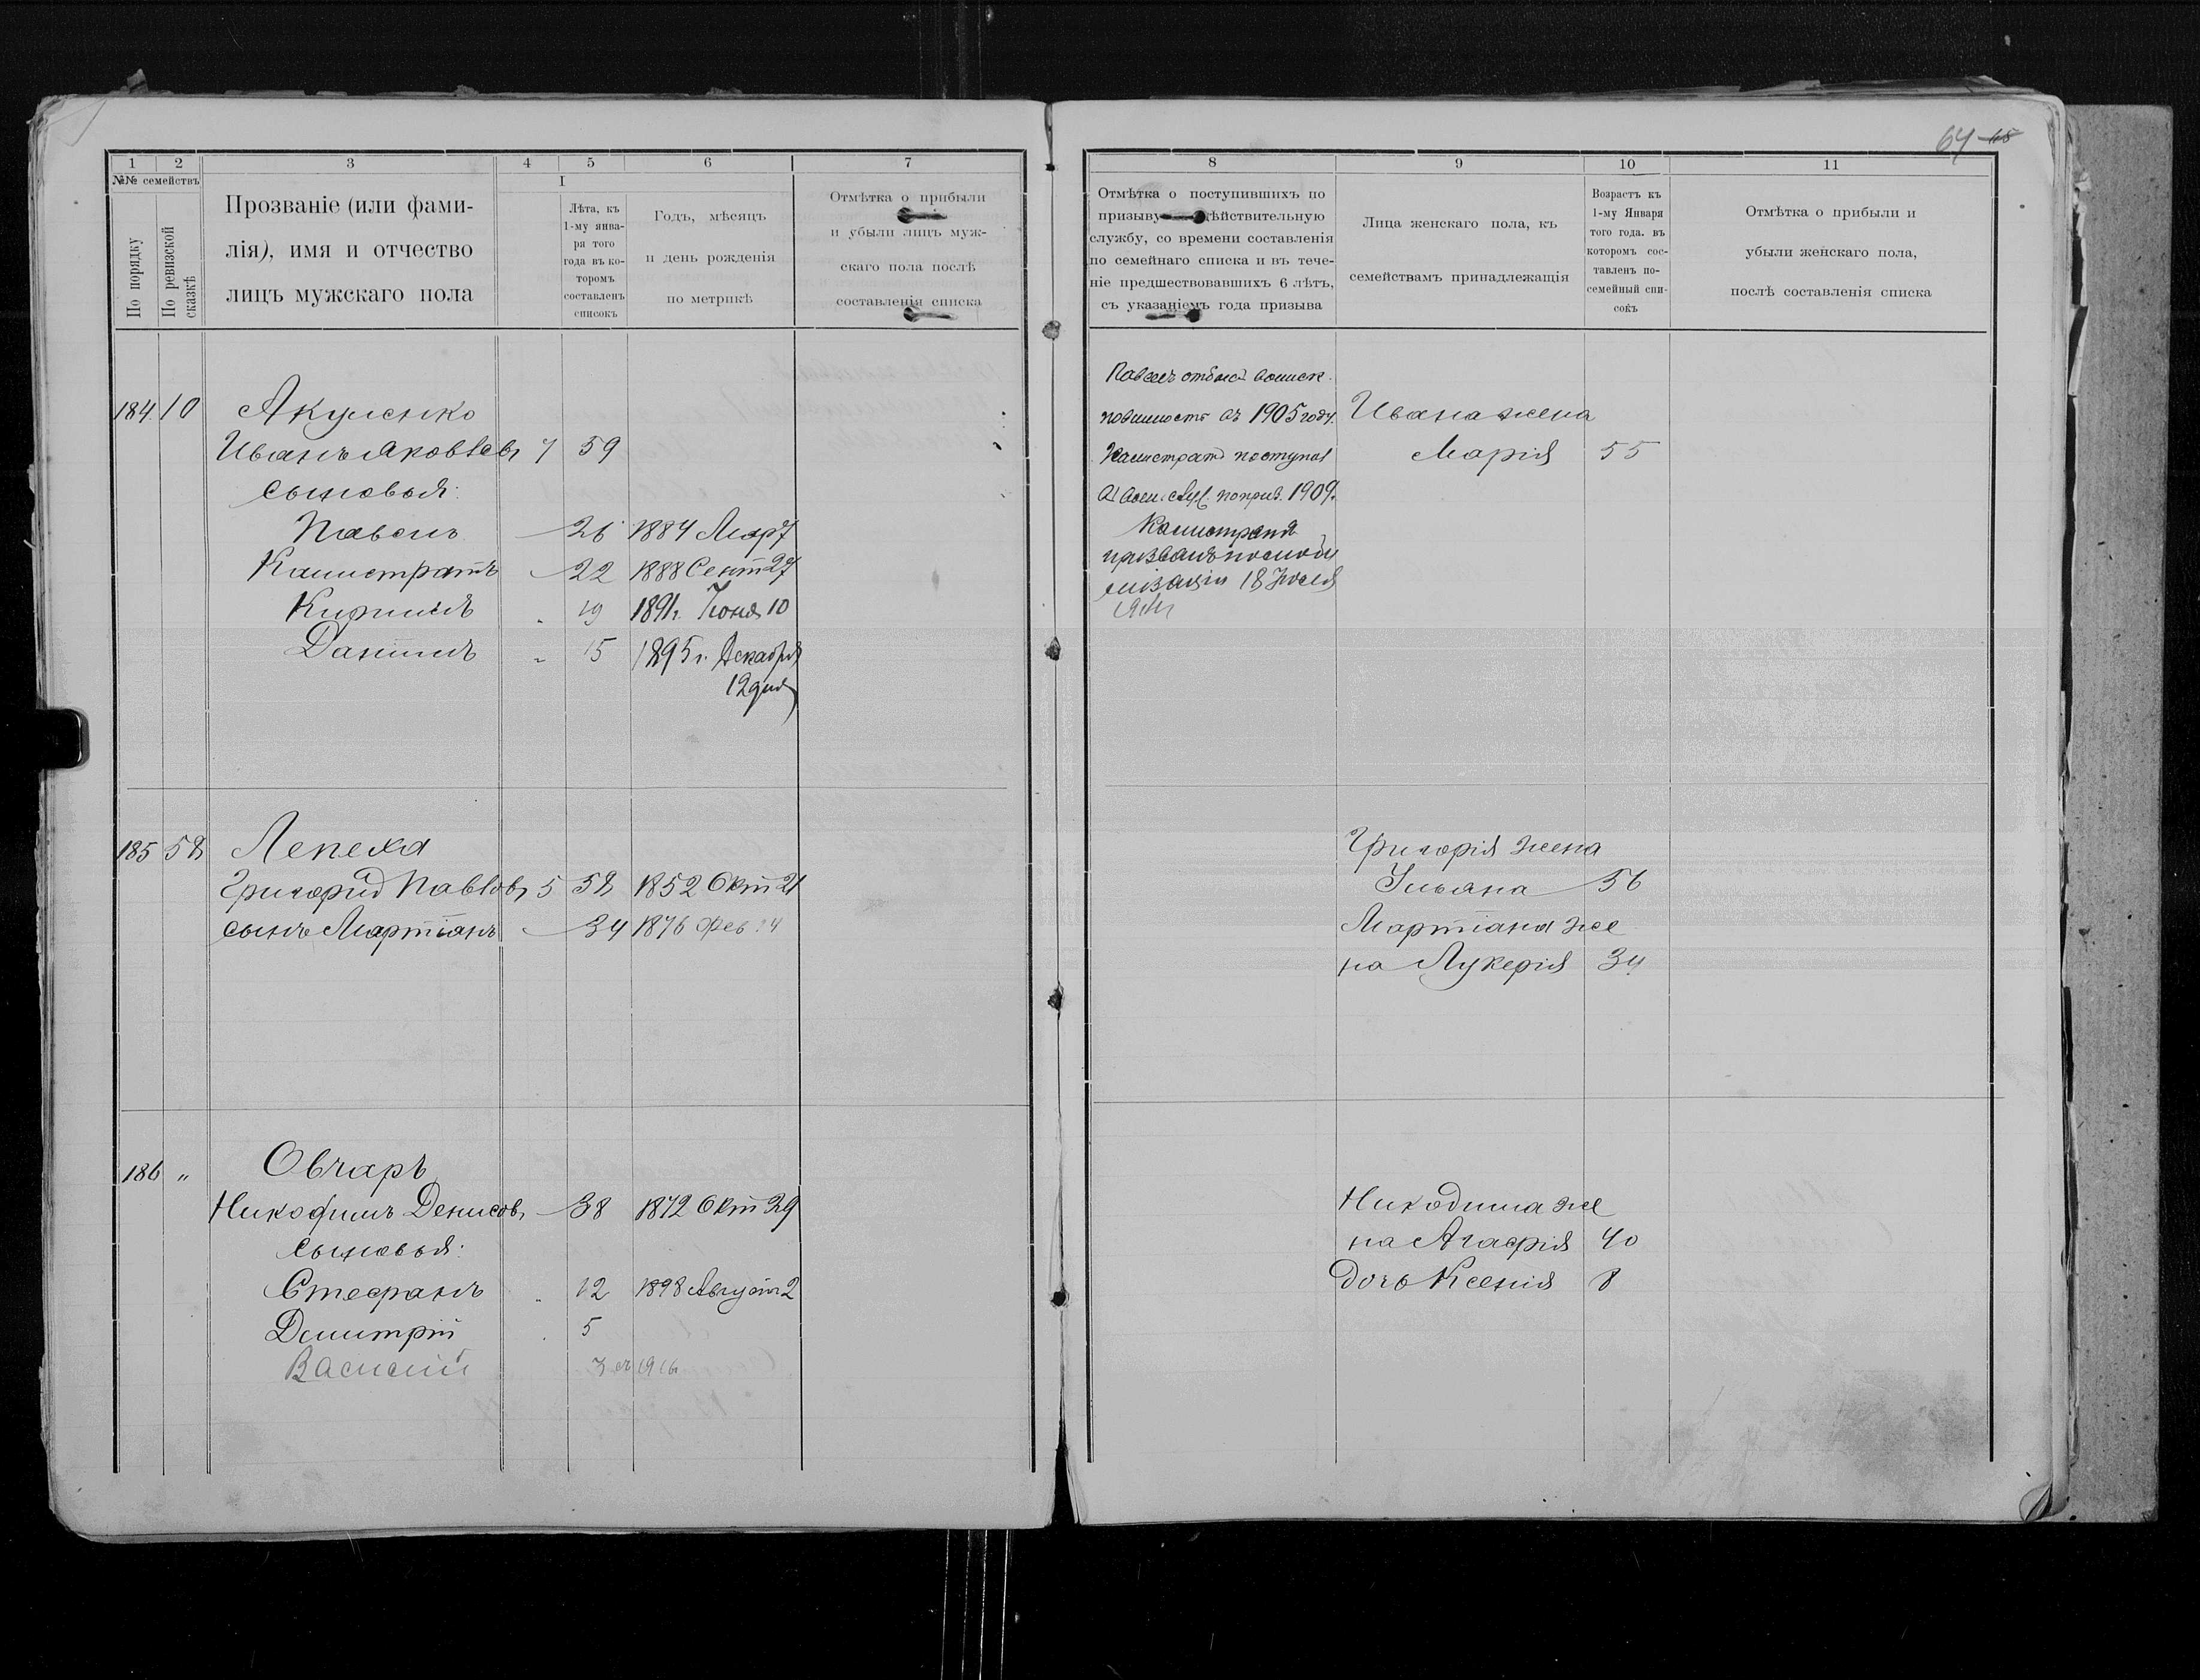 64 45
1 2 3 4 5 6 7
№№ семействъ
По порядку
По ревизской сказкѣ
Прозваніе (или фами-
лія), имя и отчество
лицъ мужскаго пола
I
Лѣта, къ
1-му янва-
ря того
года въ ко-
торомъ
составленъ
списокъ
Годъ, мѣсяцъ
и день рожденія
по метрикѣ
Отмѣтка о прибыли
и убыли лицъ муж-
скаго пола послѣ
составленія списка
184. 10 Акуленко
Иванъ Яковлевъ 7 59
сыновья:
Павелъ 26 1884 Мар 7
Калистратъ 22 1888 Сент 27
Кириллъ 19 1891г. Іюня 10
Даніилъ 15 1895 г. Декабря
12 дня
185 58 Лепеха
Григорій Павловъ 5 58 1852 Окт 21
сынъ Мартіанъ 34 1876 Фев 14
186 „ Овчаръ
Никодимъ Денисовъ 38 1872 Окт 29
сыновья:
Стефанъ 12 1898 Август 2
Димитрій 5
Василій 1916
8 9 10 11
Отмѣтка о поступившихъ по
призыву дѣйствительную
службу, со времени составленія
по семейнаго списка и въ тече-
ніе предшествовавшихъ 6 лѣтъ,
съ указаніемъ года призыва
Лица женскаго пола, къ
семействамъ принадлежащія
Возрастъ къ
1-му Января
того года. въ
которомъ сос-
тавленъ по-
семейный спи-
сокъ
Отмѣтка о прибыли и
убыли женскаго пола,
послѣ составленія списка
Павелъ отбыл воинск.
повинность въ 1905 году.
Калистратъ поступил
в воен. служ. по приз. 1909г.
Калистратъ
призванъ по моби
лизаціи 18 Іюля
1914г
Ивана жена
Марія 55
Григорія жена
Ульяна 56
Мартіана же
на Лукерія 34
Никодима же
на Агафія 40
дочь Ксенія 8